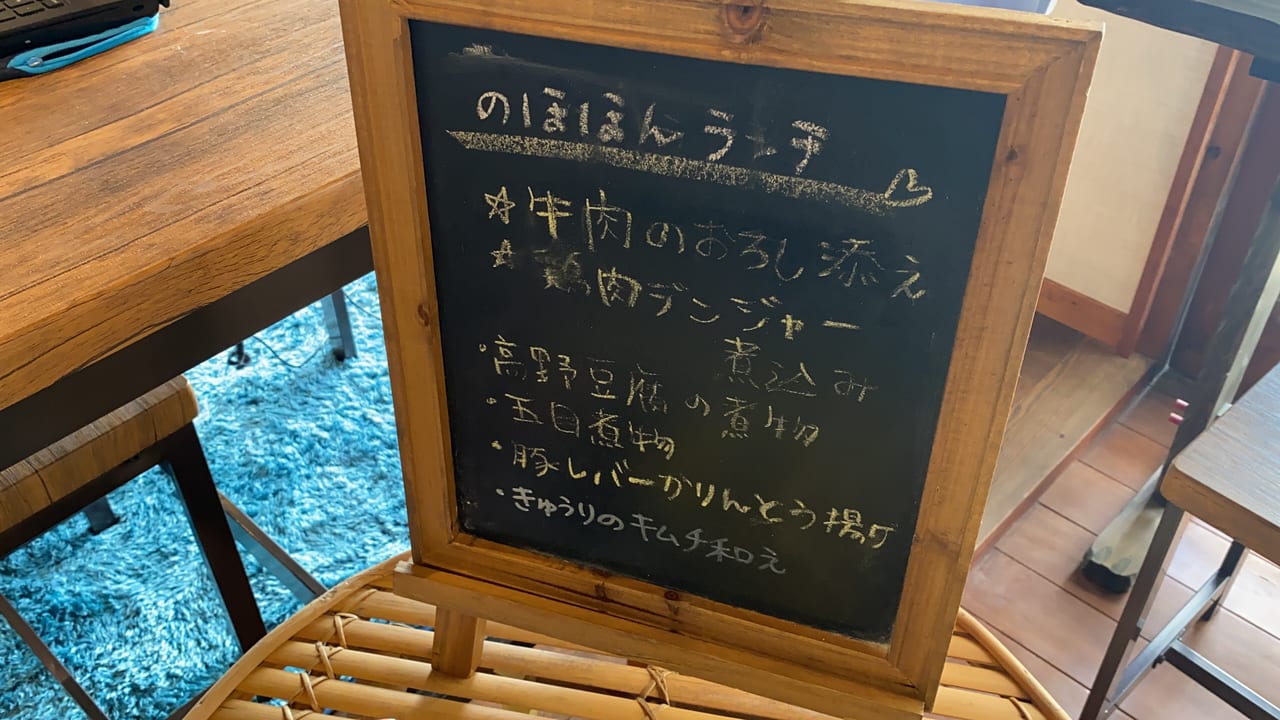 のほほんランチ
☆牛肉のおろし添え
☆鶏肉ブンジャー
煮込み
・高野豆腐の煮物
・五目煮物
・豚レバーかりんとう揚げ
・きゅうりのキムチ和え